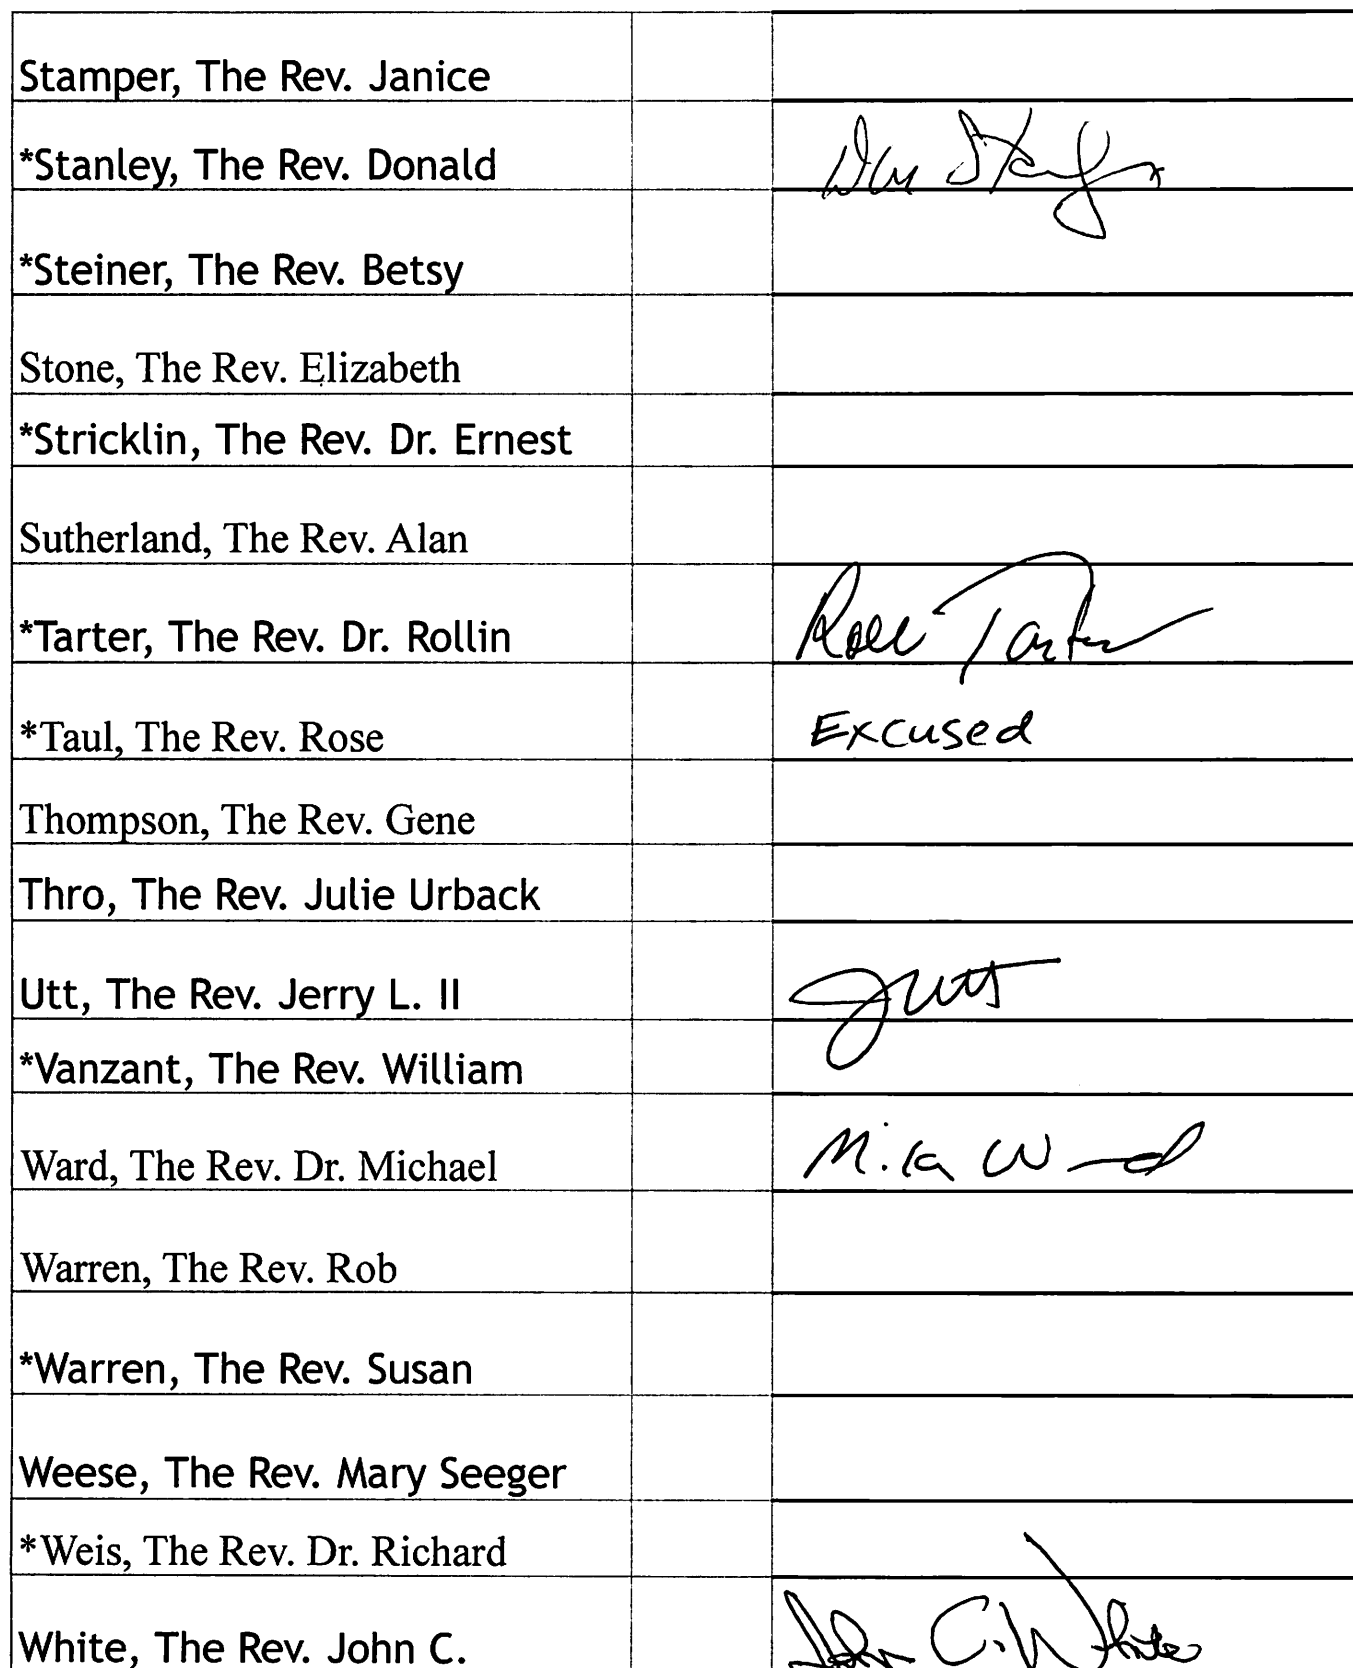 Stamper, The Rev. Janice
*Stanley, The Rev. Donald Don Stanley
*Steiner, The Rev. Betsy
Stone, The Rev. Elizabeth
*Stricklin, The Rev. Dr. Ernest
Sutherland, The Rev. Alan
*Tarter, The Rev. Dr. Rollin Tarter
*Taul, The Rev. Rose Excused
Thompson, The Rev. Gene
Thro, The Rev. Julie Urback
Utt, The Rev. Jerry L. II JUtt
*Vanzant, The Rev. William
Ward, The Rev. Dr. Michael Mike Ward
Warren, The Rev. Rob
*Warren, The Rev. Susan
Weese, The Rev. Mary Seeger
*Weis, The Rev. Dr. Richard
White, The Rev. John C. John C. White